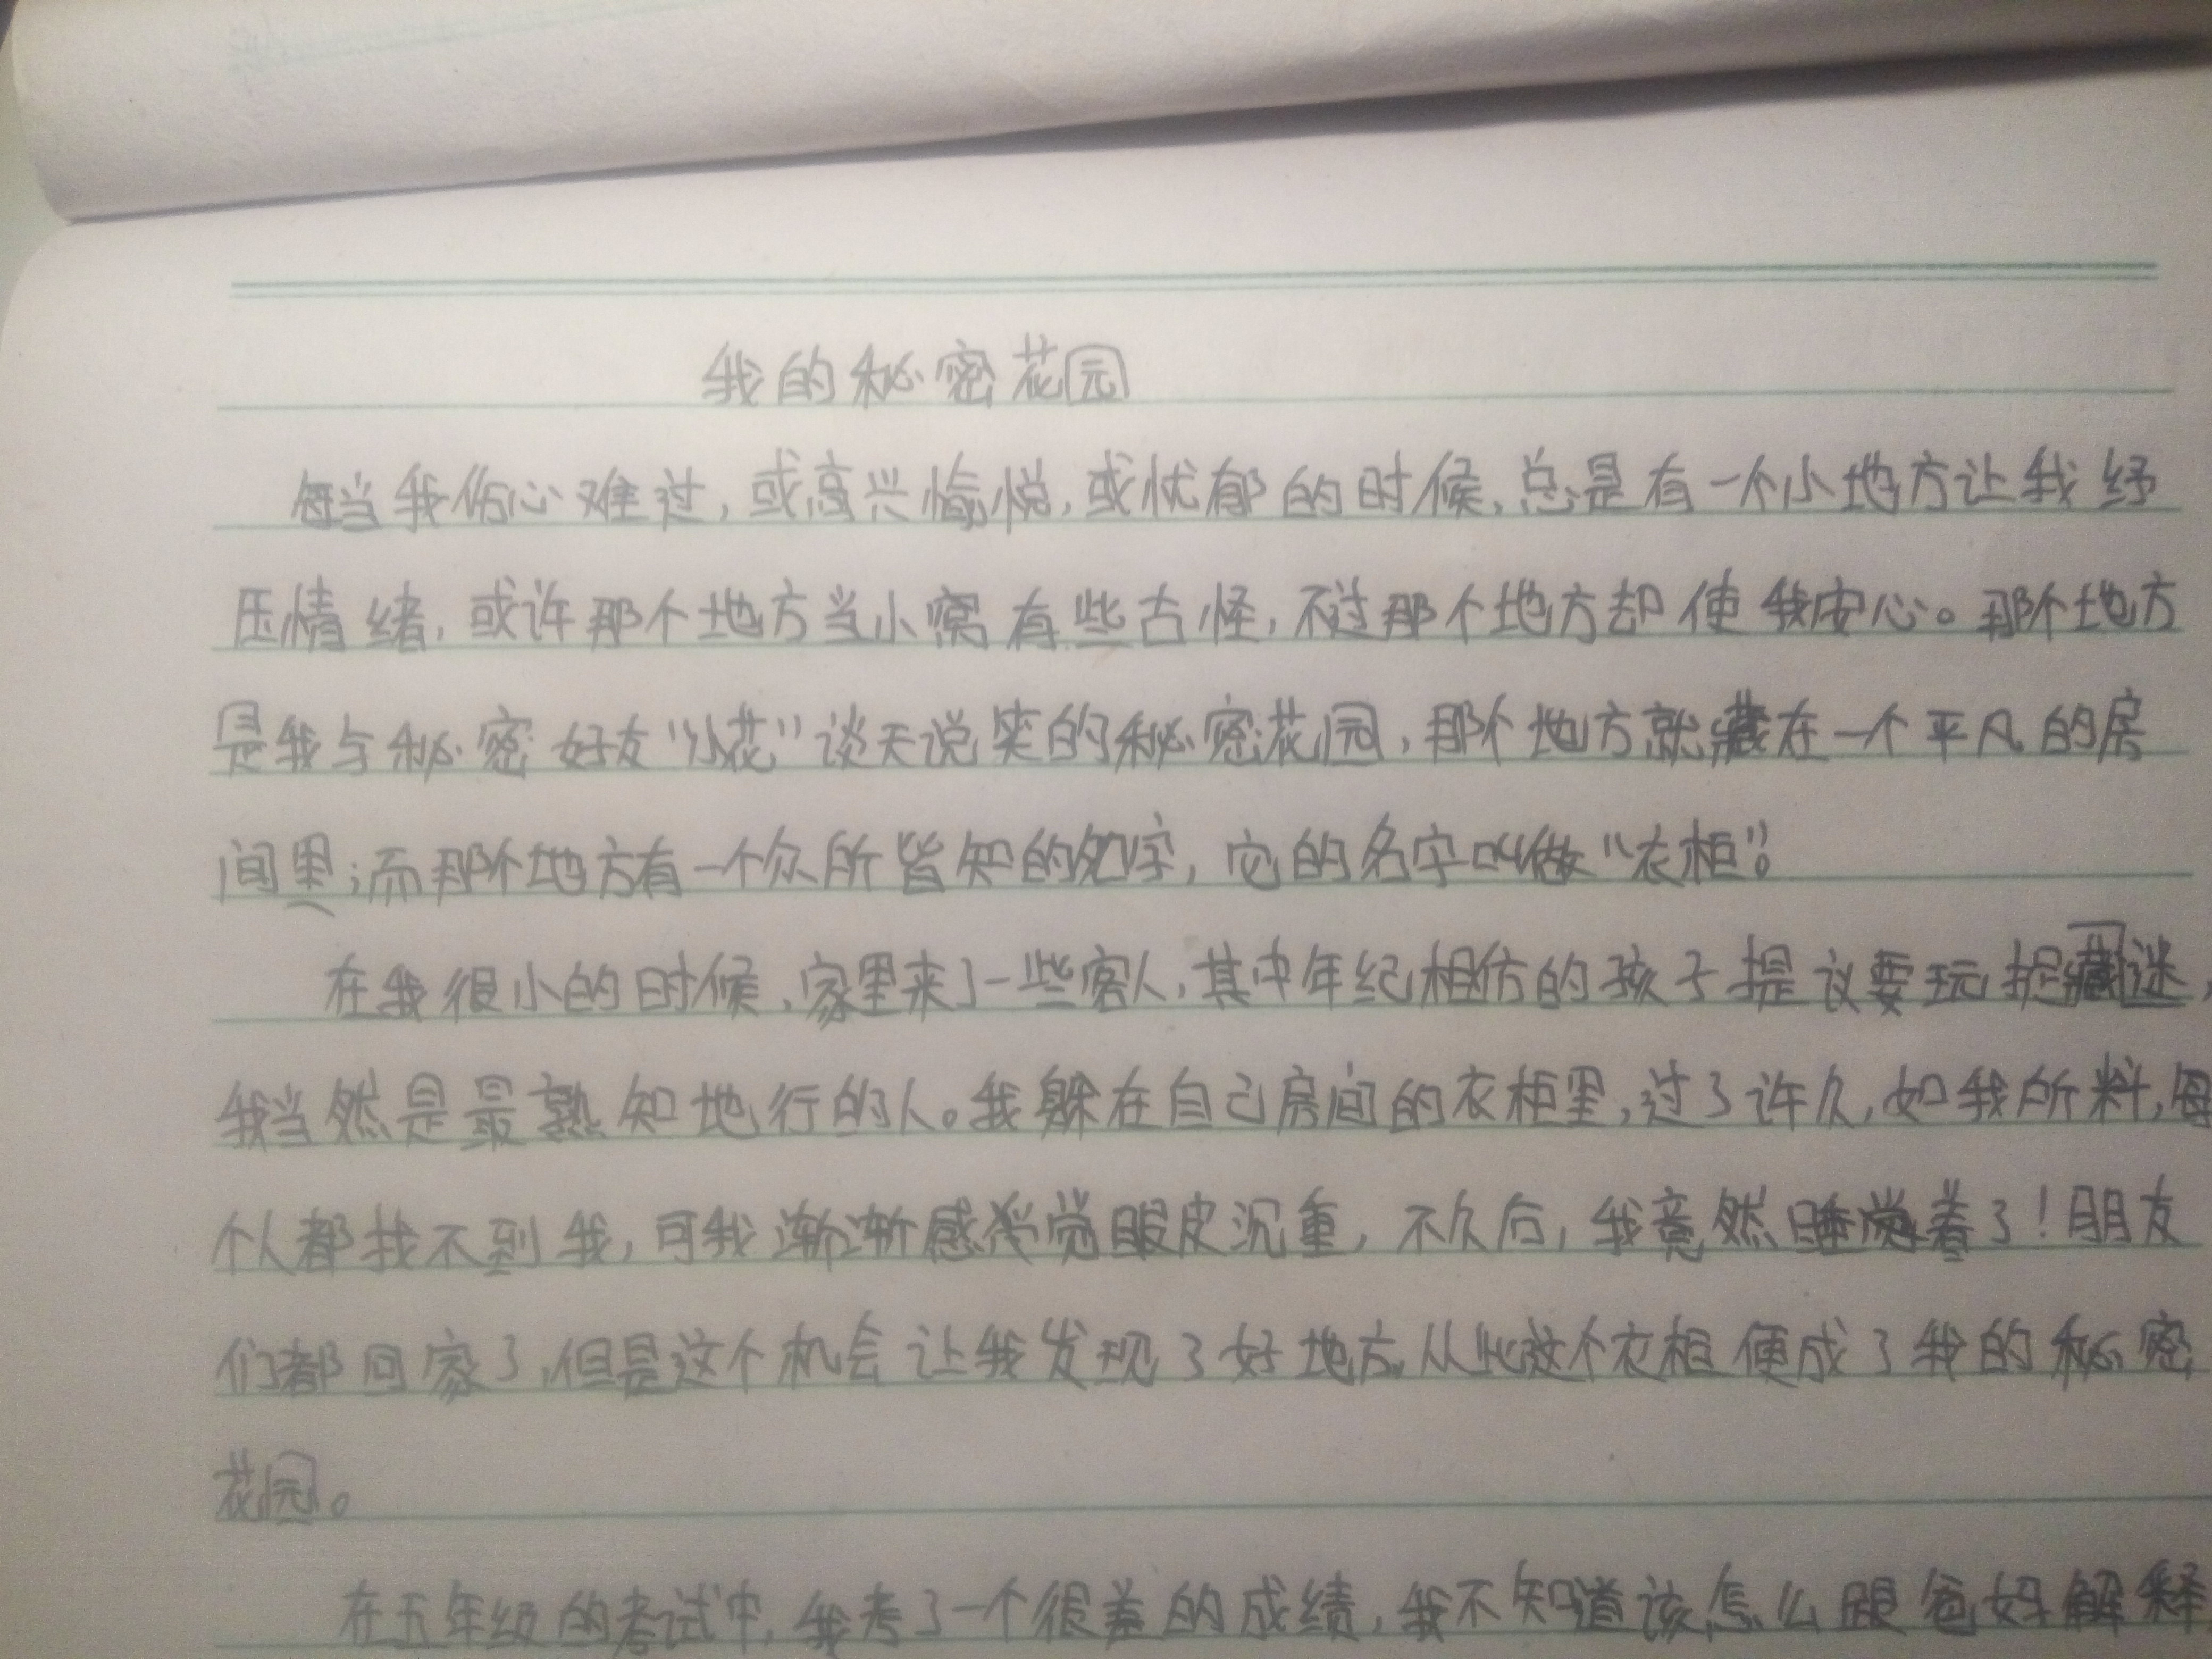 我的秘密花园
每当我伤心难过，或高兴愉悦，或忧郁的时候，总是有一个小地方让我纾
压情绪，或许那个地方当小窝有些古怪，不过那个地方却使我安心。那个地方
是我与秘密好友“小花”谈天说笑的秘密花园，那个地方就藏在一个平凡的房
间里；而那个地方有一个众所皆知的名字，它的名字叫做“衣柜”。
在我很小的时候，家里来了一些客人，其中年纪相仿的孩子提议要玩捉藏迷，
我当然是最熟知地行的人。我躲在自己房间的衣柜里，过了许久，如我所料，每
个人都找不到我，可我渐渐感觉眼皮沉重，不久后，我竟然睡着了！朋友
们都回家了，但是这个机会让我发现了好地方，从此这个衣柜便成了我的秘密
花园。
在五年级的考试中，我考了一个很差的成绩，我不知道该怎么跟爸妈解释